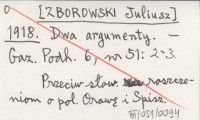 [ZBOROWSKI Juliusz]
1918. Dwa argumenty. —
Gaz. Podh. 6, nr 51: 2-3.
Przeciw słow. roszcze-
niom o pol. Orawę i Spisz.